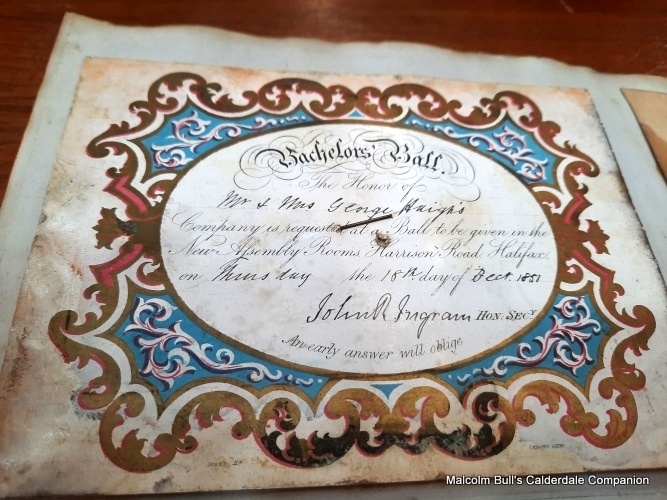 Bachelors' Ball.
The Honor of
Mr & Mrs George Haigh's
Company is requested at a Ball to be given in the
New Assembly Rooms, Harrison Road, Halifax,
on Thursday the 18th day of Dect. 1851
John R Ingram HON: SECY
An early answer will oblige
Malcolm Bull's Calderdale Companion